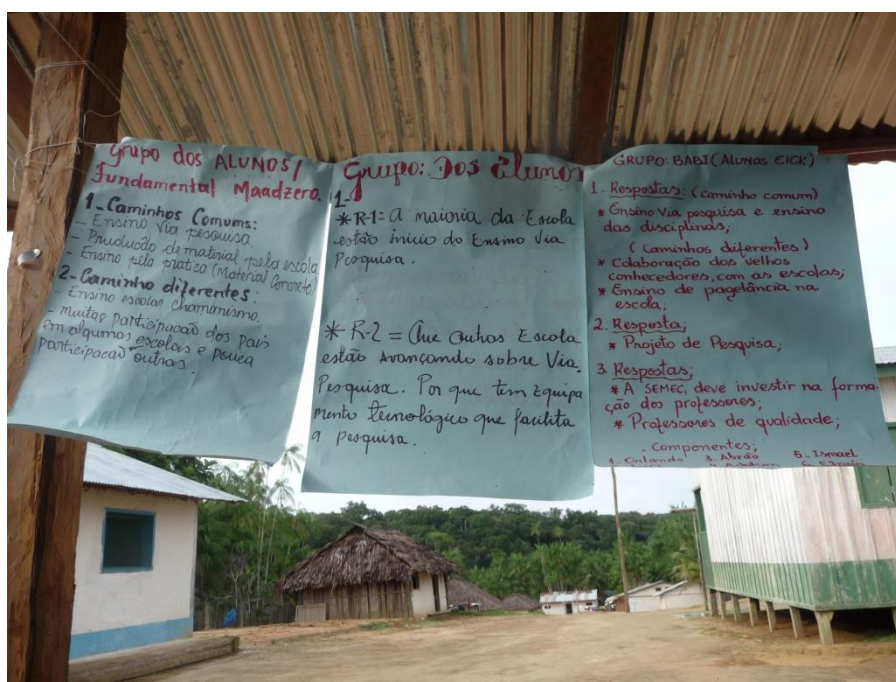 Grupo dos ALUNOS/
Fundamental Maadzero.
1- Caminhos Comums:
- Ensino via pesquisa.
- Pruducão de material pela escola
- Ensino pela pratico (Material Concreto)
2- Caminho diferentes:
- Ensino escolar chamanismo.
- muitas participacaõ dos pais
em algumos escolais e pouca
participacaõ outras.
Grupo: Dos Alunos
1-
* R-1 = A maioria da Escola
estão início do Ensino Via
Pesquisa.
* R-2 = Que Outros Escola
estão Avançando sobre Via
Pesquisa. Por que tem Equipa
mento tecnológico que facilita
a pesquisa.
GRUPO: BABI (ALUNOS EICK)
1. Respostas: (caminho comum)
* Ensino via pesquisa e ensino
das disciplinas;
(caminhos diferentes)
* Colaboração dos velhos
conhecedores, com as escolas;
* Ensino de pagelância na
escola;
2. Resposta;
* Projeto de Pesquisa;
3 Respostas;
* A SEMEC, deve investir na forma-
ção dos professores;
* Professores de qualidade;
. Componentes;
1. Orlando 3. Abrão 5- Ismael